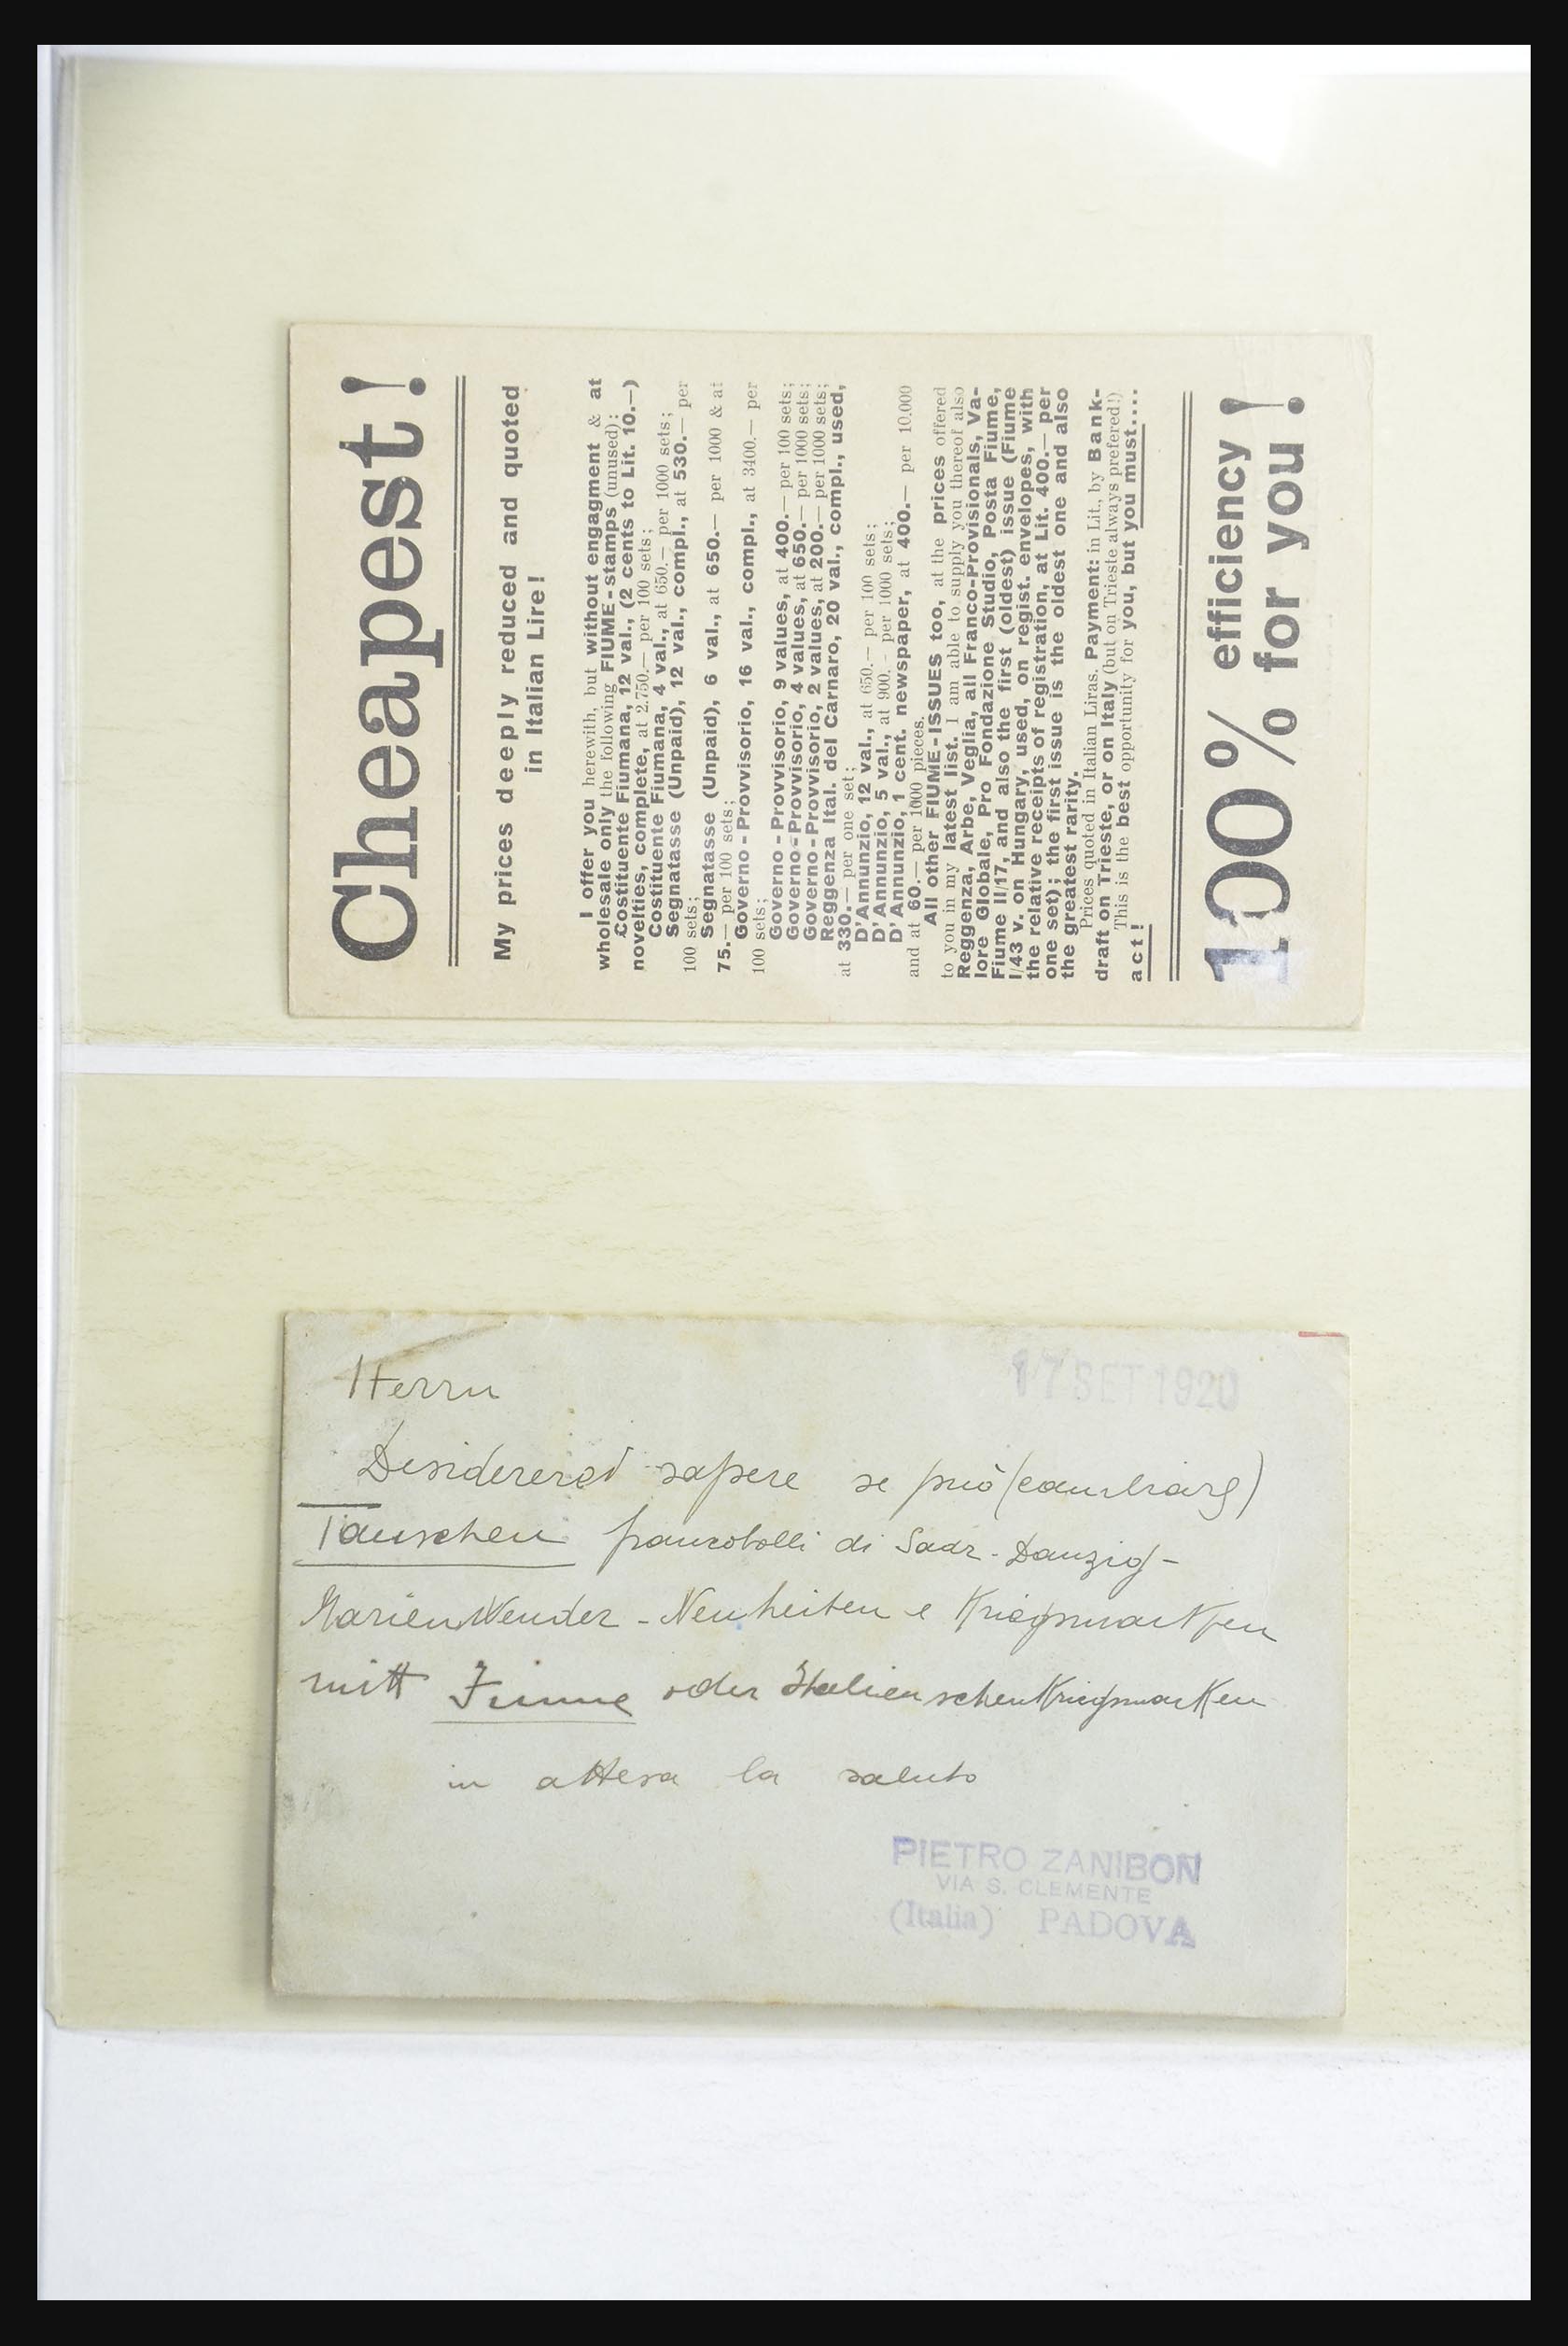 Cheapest!
My prices deeply reduced and quoted
in Italian Lire!
I offer you herewith, but without engagment & at
wholesale only the following FIUME-stamps (unused);
Costituente Fiumana, 12 val., (2 cents to Lit. 10.—)
novelties, complete, at 2.750.— per 100 sets;
Costituente Fiumana, 4 val., at 650.— per 1000 sets;
Segnatasse (Unpaid), 12 val., compl., at 530.— per
100 sets;
Segnatasse (Unpaid), 6 val., at 650.— per 1000 & at
75.— per 100 sets;
Governo-Provvisorio, 16 val., compl., at 3400.— per
100 sets;
Governo-Provvisorio, 9 values, at 400.— per 100 sets;
Governo-Provvisorio, 4 values, at 650.— per 1000 sets;
Governo-Provvisorio, 2 values, at 200.— per 1000 sets;
Reggenza Ital. del Carnaro, 20 val., compl., used,
at 330.— per one set;
D'Annunzio, 12 val., at 650.— per 100 sets;
D'Annunzio, 5 val., at 900.- per 1000 sets;
D'Annunzio, 1 cent. newspaper, at 400.— per 10.000
and at 60.— per 1000 pieces.
All other FIUME-ISSUES too, at the prices offered
to you in my latest list. I am able to supply you thereof also
Reggenza, Arbe, Veglia, all Franco-Provisionals, Va-
lore Globale, Pro Fondazione Studio, Posta Fiume,
Fiume II/17, and also the first (oldest) issue (Fiume
I/43 v. on Hungary, used, on regist. envelopes, with
the relative receipts of registration, at Lit. 400.— per
one set); the first issue is the oldest one and also
the greatest rarity.
Prices quoted in Italian Liras. Payment: in Lit., by Bank-
draft on Trieste, or on Italy (but on Trieste always prefered!)
This is the best opportunity for you, but you must....
act!
100% efficiency
for you!
17 SET 1920
Herrn
Desidererei sapere se può (cambiare)
Tauschen francobolli di Saar-Danzig-
MarienWender - Neuheiten e Kriegsmarken
mitt Fiume oder Italienischen Kriegsmarken
in attesa la saluto
PIETRO ZANIBON
VIA S. CLEMENTE
(Italia) PADOVA